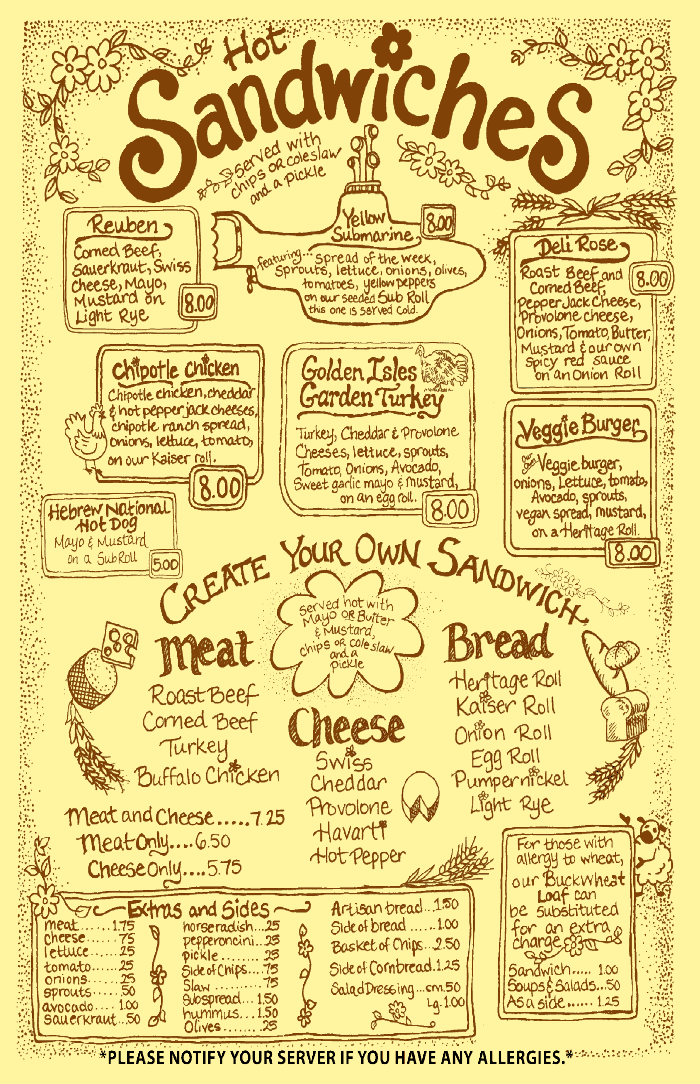 Hot
Sandwiches
served with
chips or coleslaw
and a pickle
Reuben
Corned Beef,
Sauerkraut, Swiss
cheese, Mayo,
Mustard on
Light Rye
8.00
Yellow
Submarine
8.00
featuring... spread of the week,
Sprouts, lettuce, onions, olives,
tomatoes, yellow peppers
on our seeded Sub Roll
this one is served cold.
Deli Rose
Roast Beef and
Corned Beef,
Pepper Jack Cheese,
Provolone cheese,
Onions, Tomato, Butter,
Mustard & our own
spicy red sauce
on an Onion Roll
8.00
Chipotle Chicken
Chipotle chicken, cheddar
& hot pepper jack cheeses,
chipotle ranch spread,
onions, lettuce, tomato,
on our Kaiser roll.
8.00
Golden Isles
Garden Turkey
Turkey, Cheddar & Provolone
Cheeses, lettuce, sprouts,
Tomato, Onions, Avocado,
Sweet garlic mayo & mustard,
on an egg roll.
8.00
Veggie Burger
Veggie burger,
onions, Lettuce, tomato,
Avocado, sprouts,
vegan spread, mustard,
on a Heritage Roll.
8.00
Hebrew National
Hot Dog
Mayo & Mustard
on a Sub Roll
5.00
Create Your Own Sandwich
served hot with
Mayo OR Butter
& Mustard,
chips or coleslaw
and a
pickle
Meat
Roast Beef
Corned Beef
Turkey
Buffalo Chicken
Meat and Cheese.....7.25
Meat Only....6.50
Cheese Only....5.75
Cheese
Swiss
Cheddar
Provolone
Havarti
Hot Pepper
Bread
Heritage Roll
Kaiser Roll
Onion Roll
Egg Roll
Pumpernickel
Light Rye
For those with
allergy to wheat,
our Buckwheat
Loaf can
be substituted
for an extra
charge
Sandwich..... 1.00
Soups & Salads...50
As a side...... 1.25
Extras and Sides
meat.......1.75
cheese......75
lettuce......25
tomato......25
onions......25
sprouts.....50
avocado....1.00
sauerkraut..50
horseradish...25
pepperoncini..25
pickle........25
Side of Chips...75
Slaw........75
Subspread...1.50
hummus....1.50
Olives.......25
Artisan bread...1.50
Side of bread......1.00
Basket of Chips..2.50
Side of Cornbread.1.25
Salad Dressing...sm.50
Lg. 1.00
*PLEASE NOTIFY YOUR SERVER IF YOU HAVE ANY ALLERGIES.*